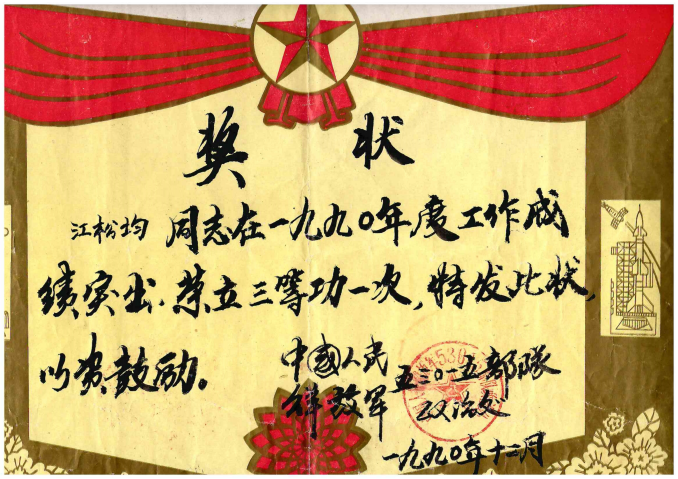 奖状
江松均 同志在一九九〇年度工作成
绩突出,荣立三等功一次,特发此状,
以资鼓励。
中國人民
解放军
五三〇一五部隊
政治处
一九九〇年十二月